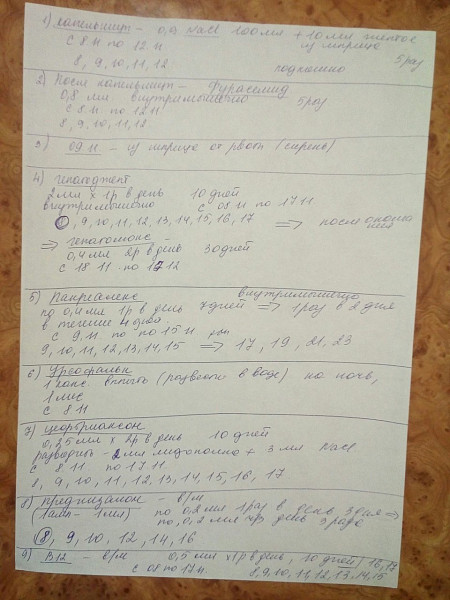 1) Капельницы - 0,9 NaCl 100 мл + 10 мл
с 8.11 по 12.11 из шприца
8, 9, 10, 11, 12 подкожно 5 раз
2) После капельниц - Фуросемид
0,8 мл внутримышечно 5 раз
с 8.11 по 12.11
8, 9, 10, 11, 12
3) 09.11 - из шприца от рвоты (сирень)
4) Гепатоджект
2 мл х 1р в день 10 дней
внутримышечно с 08.11 по 17.11
8, 9, 10, 11, 12, 13, 14, 15, 16, 17 => после
=> -
0,4 мл 2р в день 30 дней
с 18.11 по 17.12
5) внутримышечно
по 0,4 мл 1р в день 7 дней => 1 раз в 2 дня
в течение
с 9.11 по по 15.11
9, 10, 11, 12, 13, 14, 15 => 17, 19, 21, 23
6) Урсофальк
1 капс. (развести в воде) на ночь,
1 мес
с 8.11
7)
0,25 мл х 2р в день 10 дней
разводить - 2 мл + 3 мл NaCl
с 8.11 по 17.11
8, 9, 10, 11, 12, 13, 14, 15, 16, 17
8) Преднизолон - в/м
(1 амп - 1 мл) по 0,2 мл 1 раз в день, 3 дня =>
по 0,2 мл день 3 раза
8, 9, 10, 12, 14, 16
9) B12 - в/м 0,5 мл х 1р в день, 10 дней 16, 17
с 08 по 17.11. 8, 9, 10, 11, 12, 13, 14, 15